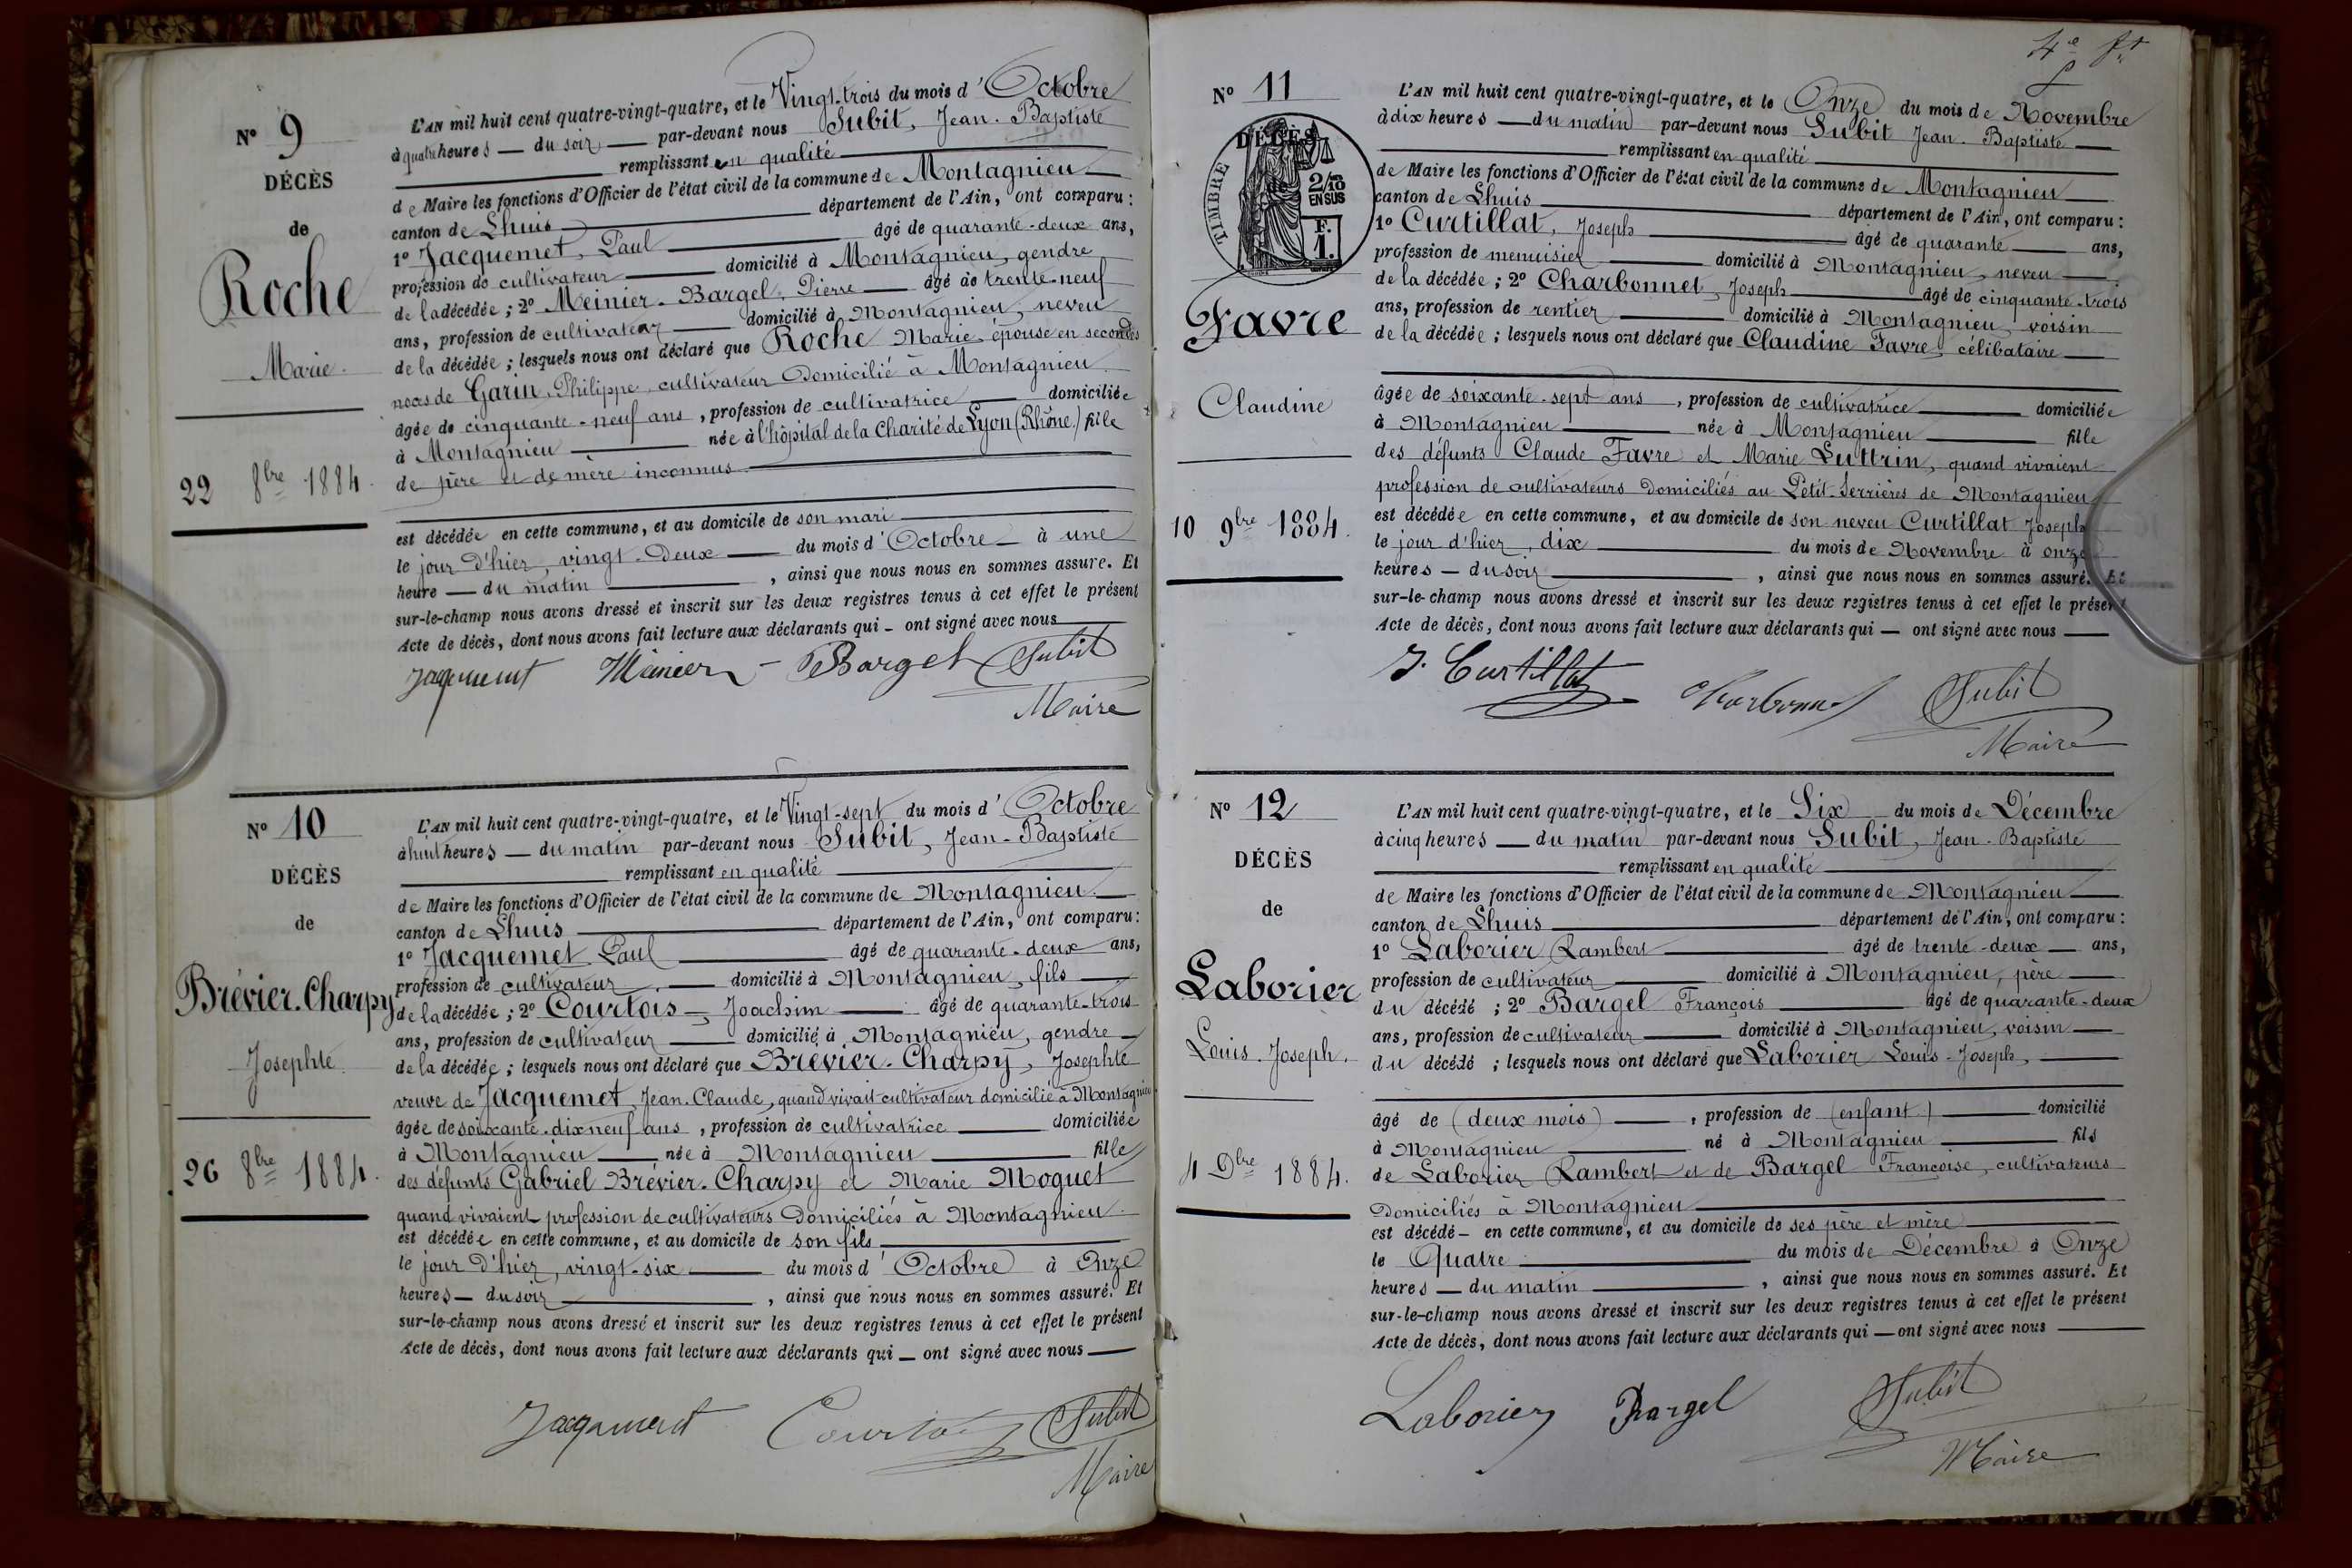 N° 9
DÉCÈS
de
Roche
Marie.
22 8bre 1884.
L'AN mil huit cent quatre-vingt-quatre, et le Vingt-trois du mois d'Octobre
à quatre heures — du soir — par-devant nous Subit, Jean-Baptiste
remplissant en qualité
de Maire les fonctions d'Officier de l'état civil de la commune de Montagnieu
canton de Lhuis département de l'Ain, ont comparu :
1° Jacquemet, Paul âgé de quarante-deux ans,
profession de cultivateur domicilié à Montagnieu, gendre
de la décédée ; 2° Meinier-Bargel, Pierre âgé de trente-neuf
ans, profession de cultivateur domicilié à Montagnieu, neveu
de la décédée ; lesquels nous ont déclaré que Roche Marie, épouse en secondes
noces de Garin, Philippe, cultivateur domicilié à Montagnieu
âgée de cinquante-neuf ans, profession de cultivatrice domiciliée
à Montagnieu née à l'hôpital de la Charité de Lyon (Rhône) fille
de père et de mère inconnus
est décédée en cette commune, et au domicile de son mari
le jour d'hier, vingt-deux du mois d'Octobre à une
heure — du matin, ainsi que nous nous en sommes assuré. Et
sur-le-champ nous avons dressé et inscrit sur les deux registres tenus à cet effet le présent
Acte de décès, dont nous avons fait lecture aux déclarants qui — ont signé avec nous
Jaquemet Meinier - Bargel Subit
Maire
N° 10
DÉCÈS
de
Brévier-Charpy
Josephte
26 8bre 1884.
L'AN mil huit cent quatre-vingt-quatre, et le Vingt-sept du mois d'Octobre
à huit heures — du matin par-devant nous Subit, Jean-Baptiste
remplissant en qualité
de Maire les fonctions d'Officier de l'état civil de la commune de Montagnieu
canton de Lhuis département de l'Ain, ont comparu :
1° Jacquemet Paul âgé de quarante-deux ans,
profession de cultivateur domicilié à Montagnieu, fils
de la décédée ; 2° Courtois, Joachim âgé de quarante-trois
ans, profession de cultivateur domicilié à Montagnieu, gendre
de la décédée ; lesquels nous ont déclaré que Brévier-Charpy, Josephte
veuve de Jacquemet, Jean-Claude, quand vivait cultivateur domicilié à Montagnieu
âgée de soixante-dix neuf ans, profession de cultivatrice domiciliée
à Montagnieu née à Montagnieu fille
des défunts Gabriel Brévier-Charpy et Marie Moquet
quand vivaient profession de cultivateurs domiciliés à Montagnieu
est décédée en cette commune, et au domicile de son fils
le jour d'hier, vingt-six du mois d'Octobre à Onze
heures — du soir, ainsi que nous nous en sommes assuré. Et
sur-le-champ nous avons dressé et inscrit sur les deux registres tenus à cet effet le présent
Acte de décès, dont nous avons fait lecture aux déclarants qui — ont signé avec nous
Jacquemet Courtois Subit
Maire
4e ft
N° 11
DÉCÈS
de
TIMBRE
2/10
EN SUS
F.
1.
Favre
Claudine
10 9bre 1884.
L'AN mil huit cent quatre-vingt-quatre, et le Onze du mois de Novembre
à dix heures — du matin par-devant nous Subit Jean-Baptiste
remplissant en qualité
de Maire les fonctions d'Officier de l'état civil de la commune de Montagnieu
canton de Lhuis département de l'Ain, ont comparu :
1° Curtillat, Joseph âgé de quarante ans,
profession de menuisier domicilié à Montagnieu, neveu
de la décédée ; 2° Charbonnet, Joseph âgé de cinquante-trois
ans, profession de rentier domicilié à Montagnieu, voisin
de la décédée ; lesquels nous ont déclaré que Claudine Favre, célibataire
âgée de soixante-sept ans, profession de cultivatrice domiciliée
à Montagnieu née à Montagnieu fille
des défunts Claude Favre et Marie Luttrin, quand vivaient
profession de cultivateurs domiciliés au Petit-Serrières de Montagnieu
est décédée en cette commune, et au domicile de son neveu Curtillat Joseph
le jour d'hier, dix du mois de Novembre à onze
heures — du soir, ainsi que nous nous en sommes assuré. Et
sur-le-champ nous avons dressé et inscrit sur les deux registres tenus à cet effet le présent
Acte de décès, dont nous avons fait lecture aux déclarants qui — ont signé avec nous
J. Curtillat Charbonnet Subit
Maire
N° 12
DÉCÈS
de
Laborier
Louis-Joseph.
4 Dbre 1884.
L'AN mil huit cent quatre-vingt-quatre, et le Six du mois de Décembre
à cinq heures — du matin par-devant nous Subit, Jean-Baptiste
remplissant en qualité
de Maire les fonctions d'Officier de l'état civil de la commune de Montagnieu
canton de Lhuis département de l'Ain, ont comparu :
1° Laborier Lambert âgé de trente-deux ans,
profession de cultivateur domicilié à Montagnieu, père
du décédé ; 2° Bargel François âgé de quarante-deux
ans, profession de cultivateur domicilié à Montagnieu, voisin
du décédé ; lesquels nous ont déclaré que Laborier Louis-Joseph,
âgé de (deux mois), profession de (enfant) domicilié
à Montagnieu né à Montagnieu fils
de Laborier Lambert et de Bargel Françoise, cultivateurs
domiciliés à Montagnieu
est décédé — en cette commune, et au domicile de ses père et mère
le Quatre du mois de Décembre à Onze
heures — du matin, ainsi que nous nous en sommes assuré. Et
sur-le-champ nous avons dressé et inscrit sur les deux registres tenus à cet effet le présent
Acte de décès, dont nous avons fait lecture aux déclarants qui — ont signé avec nous
Laborier Bargel Subit
Maire